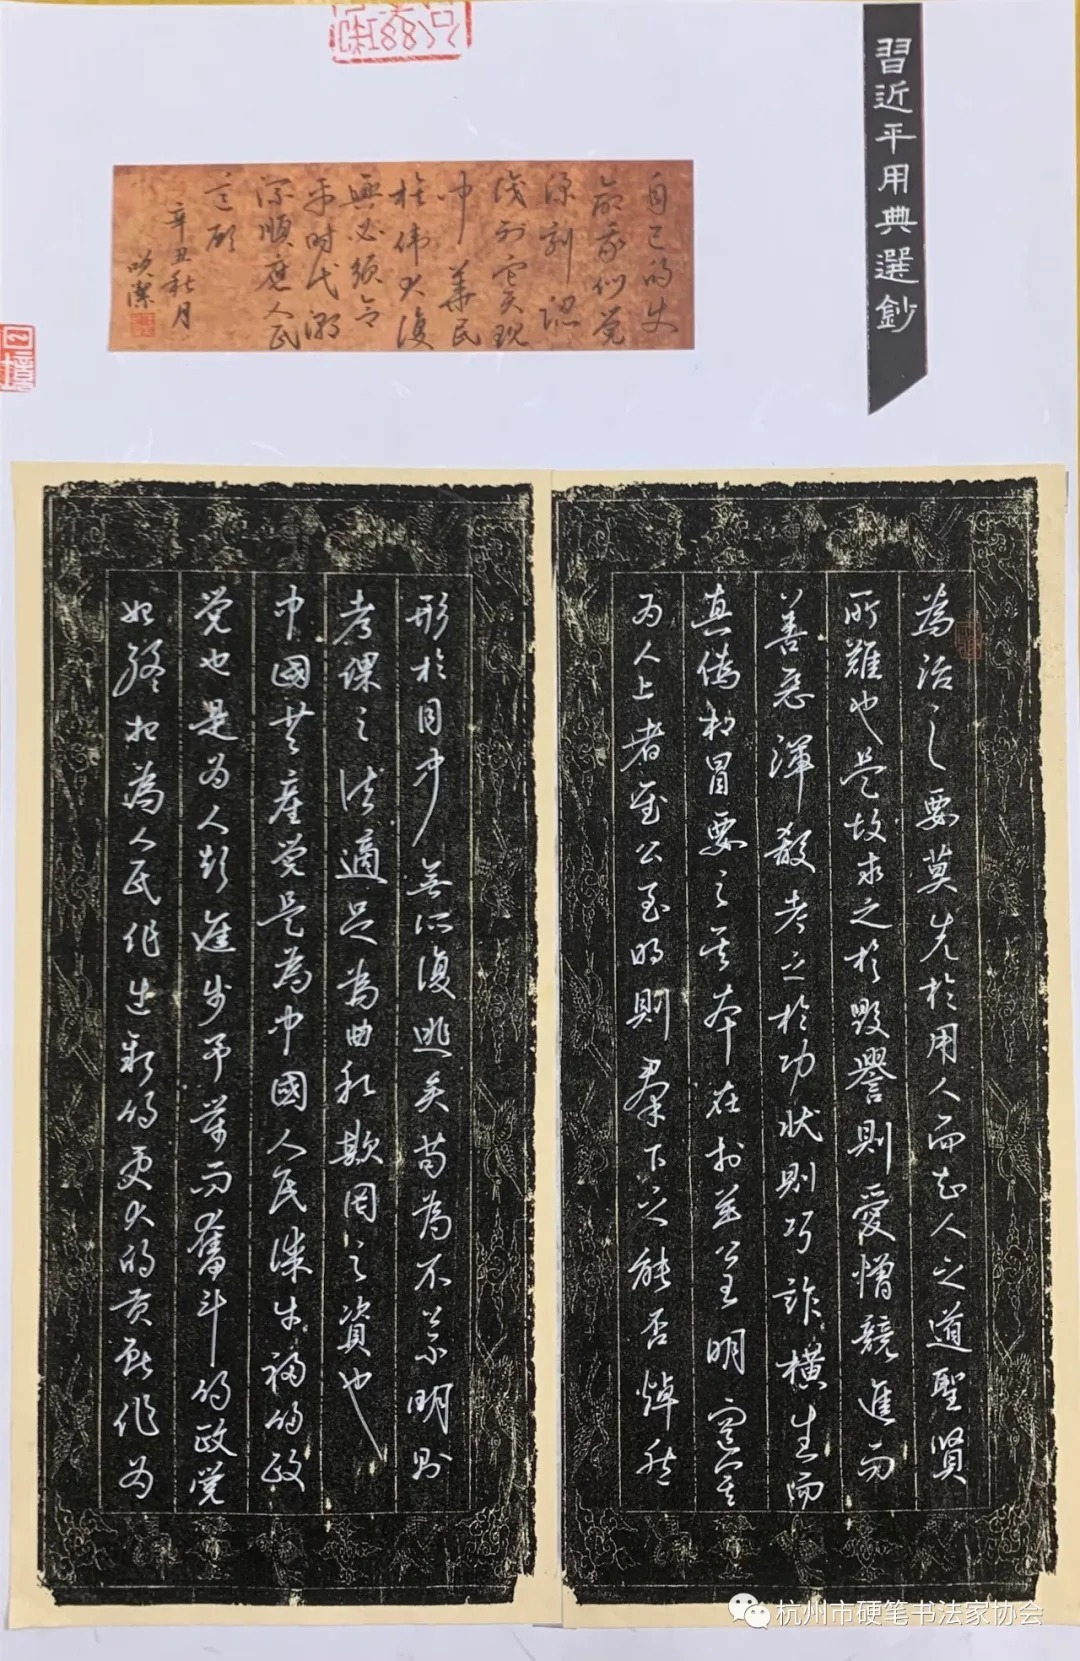 習近平用典選鈔
為治之要莫先於用人而知人之道聖賢
所難也是故求之於毀譽則愛憎競進而
善惡渾殽考之於功狀則巧詐橫生而
真偽相冒要之其本在於至公至明而已矣
为人上者至公至明則羣下之能否焯然
形於目中無所復逃矣苟為不公不明則
考課之法適足為曲私欺罔之資也
中國共产党是為中國人民谋幸福的政
党也是为人类進步事業而奮斗的政党
始終把為人民作出新的更大的貢獻作为
自己的使
命我们党
深刻認
識到实现
中華民
族伟大復
興必须合
乎时代潮
流順應人民
意愿
辛丑秋月
杭州市硬笔书法家协会